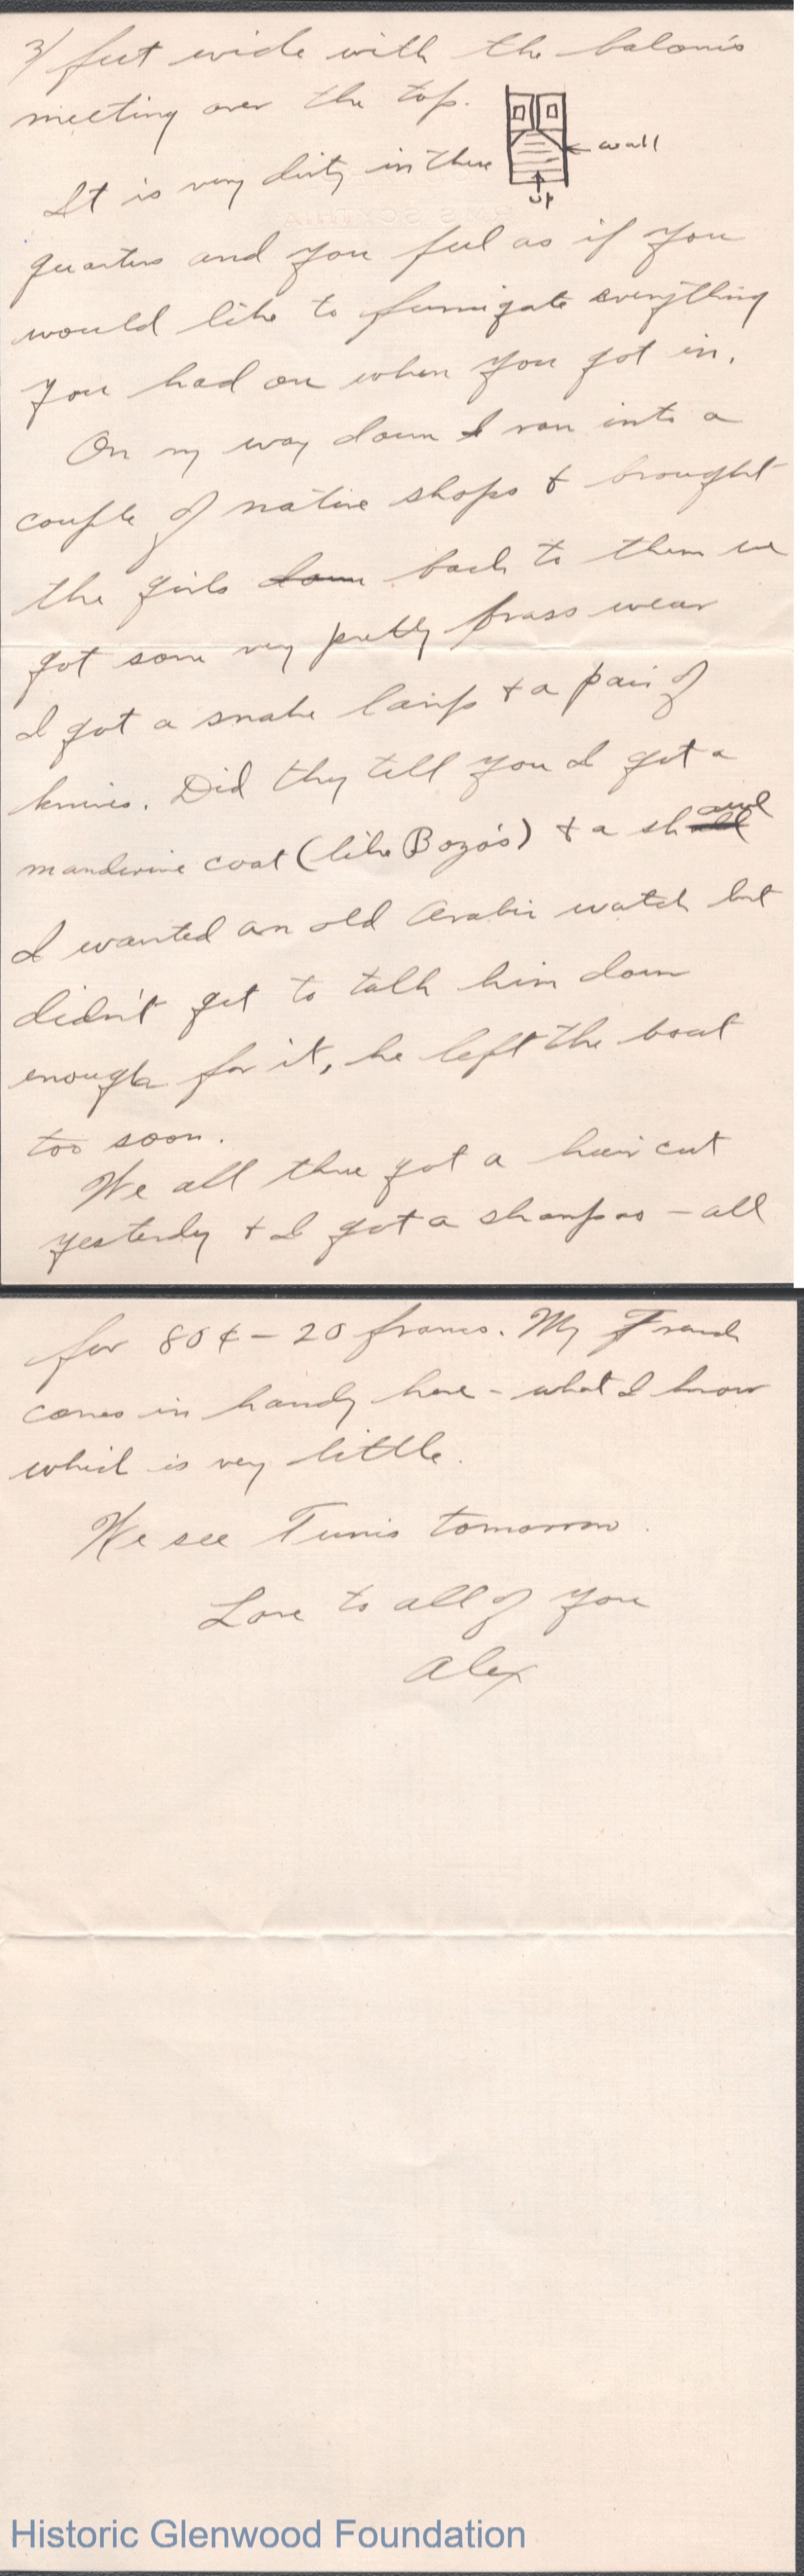 3/ feet wide with the balonis
meeting over the top.
← wall
It is very dirty in these
up
quarters and you feel as if you
would like to fumigate everything
you had on when you got in.
On my way down I ran into a
couple of native shops & brought
the girls down back to them we
got some very pretty brass wear
I got a snake lamp & a pair of
knives. Did they tell you I got a
manderine coat (like Bozo's) & a shawl
I wanted an old Arabic watch but
didn't get to talk him down
enough for it, he left the boat
too soon.
We all three got a hair cut
yesterday & I got a shampoo - all
for 80¢ - 20 francs. My French
comes in handy here - what I know
which is very little.
We see Tunis tomorrow.
Love to all of you
Alex
Historic Glenwood Foundation